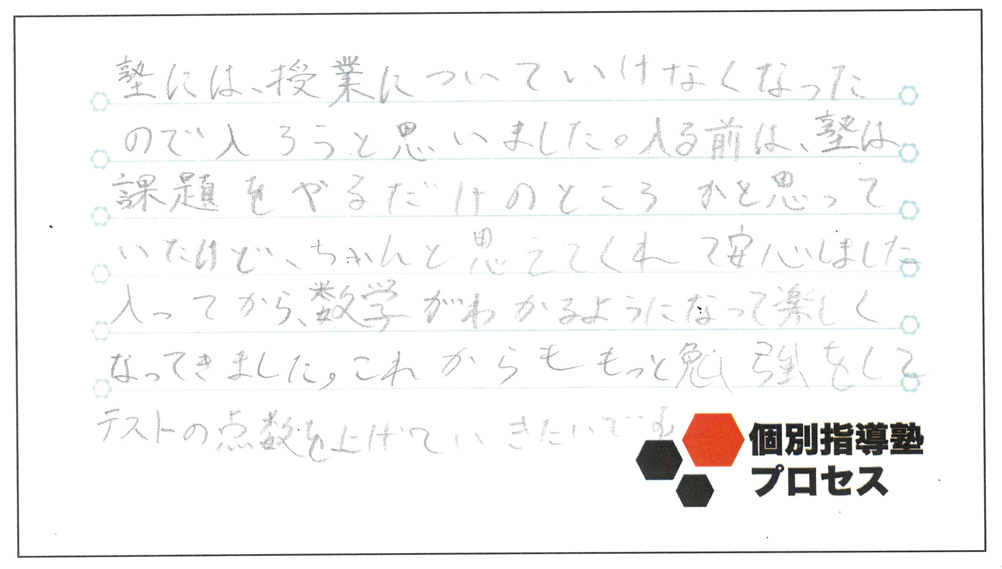 塾には、授業についていけなくなった
ので入ろうと思いました。入る前は、塾は
課題をやるだけのところかと思って
いたけど、ちゃんと思えてくれて安心しました
入ってから、数学がわかるようになって楽しく
なってきました。これからももっと勉強をして
テストの点数を上げていきたいです
個別指導塾
プロセス